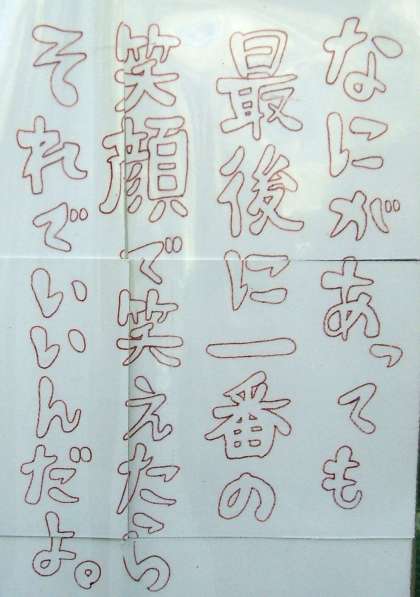 なにがあっても
最後に一番の
笑顔で笑えたら
それでいいんだよ。